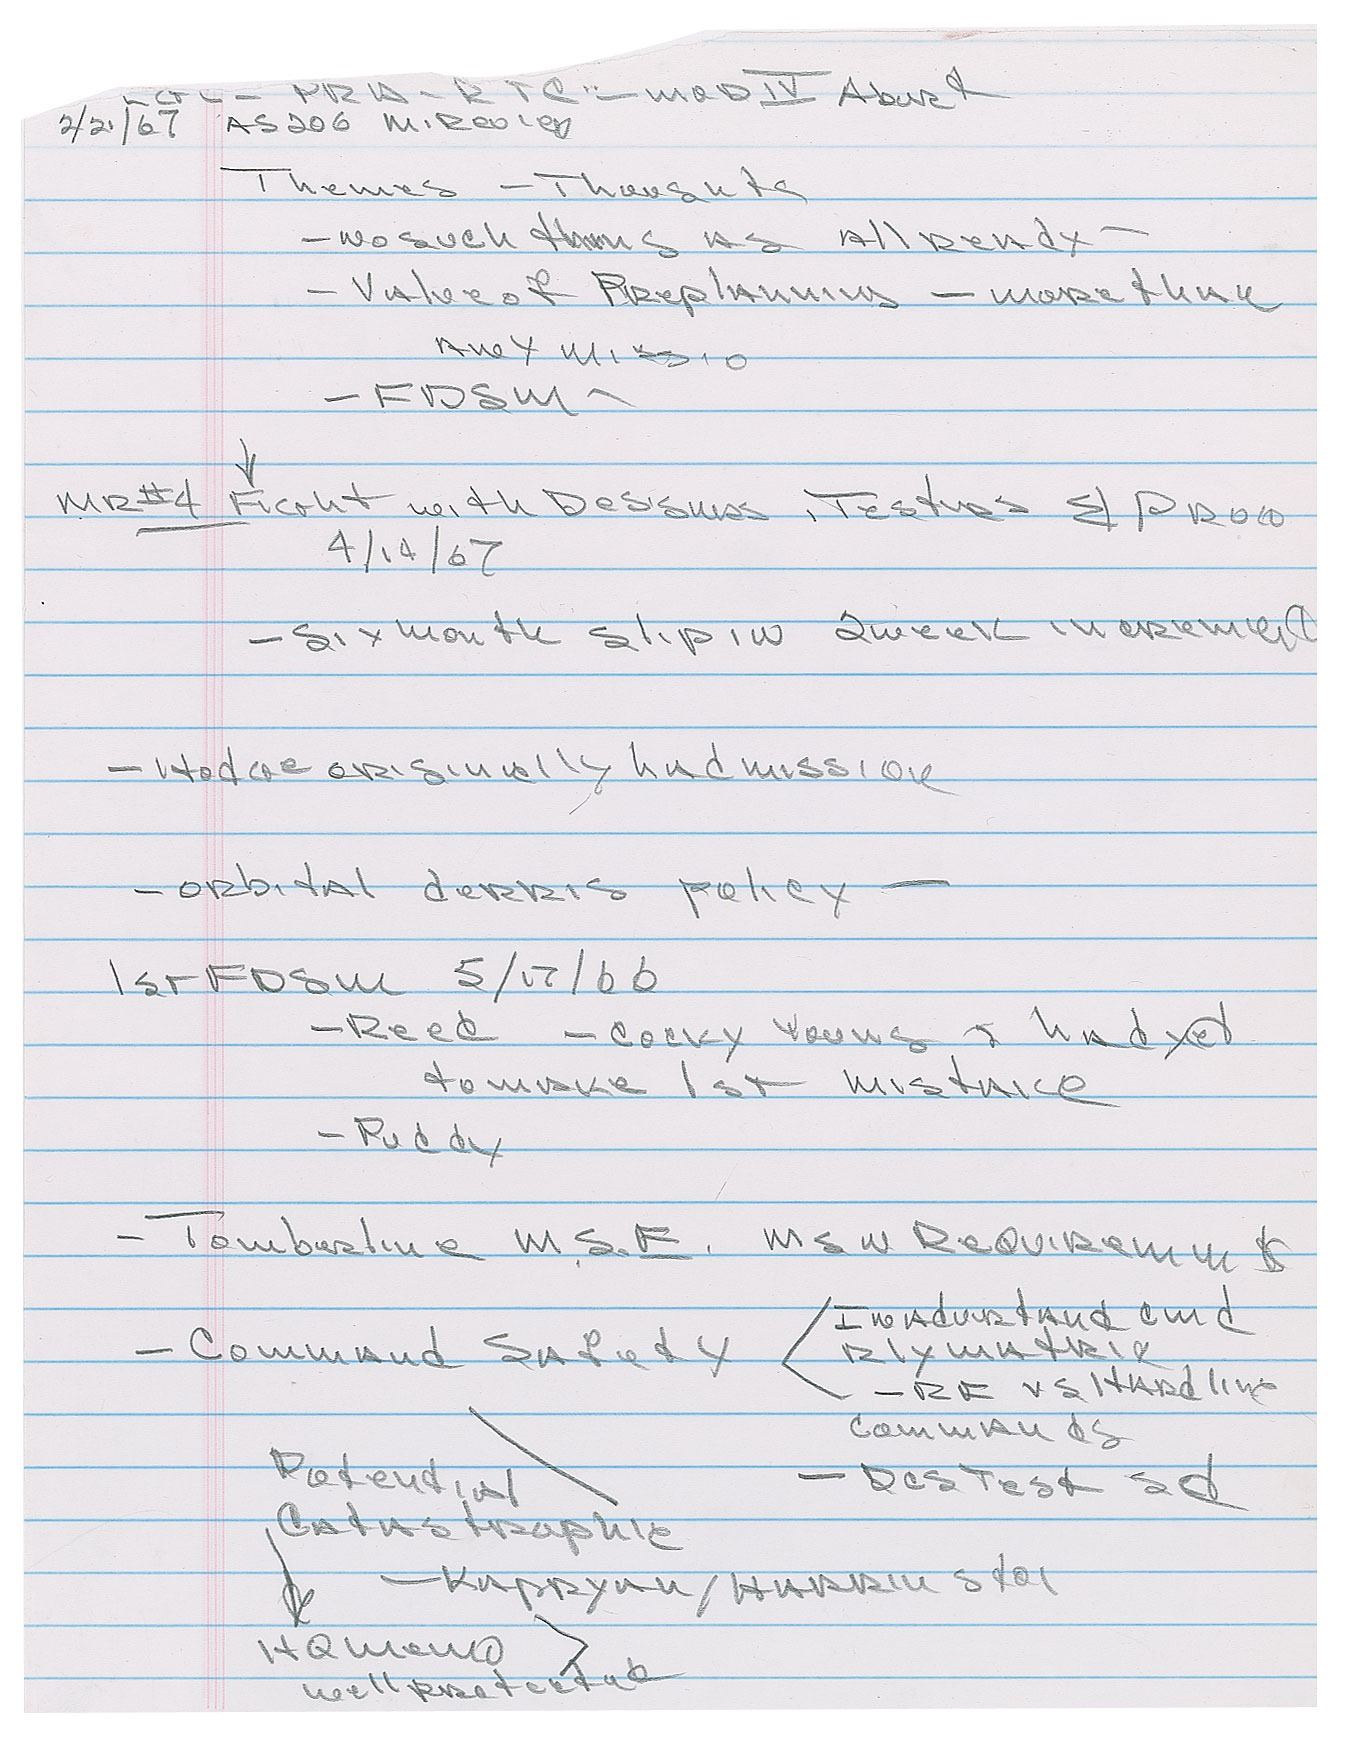 PRA - RTC - MOD IV Abort
2/21/67 AS206
Themes - Thoughts
- no such thing as all ready -
- Value of Preplanning - more than
any missio
- FDSM -
MR#4 Fight with Designers, Testers & Proo
4/14/67
- Six month slip in 2 week increment
- Hodge originally had mission
- orbital derris policy -
1st FDSM 5/17/66
- Reed - cocky young & had yet
to make 1st mistake
- Puddy
- Tomberline M.S.F. MSN Requiremnts
- Command Safety
Inadvertant cmd
Rly matrix
- RF vs Hardline
commands
Potential
- DCS Test sd
Catastrophic
- Kapryan / Harrington
HQ memo
well protected